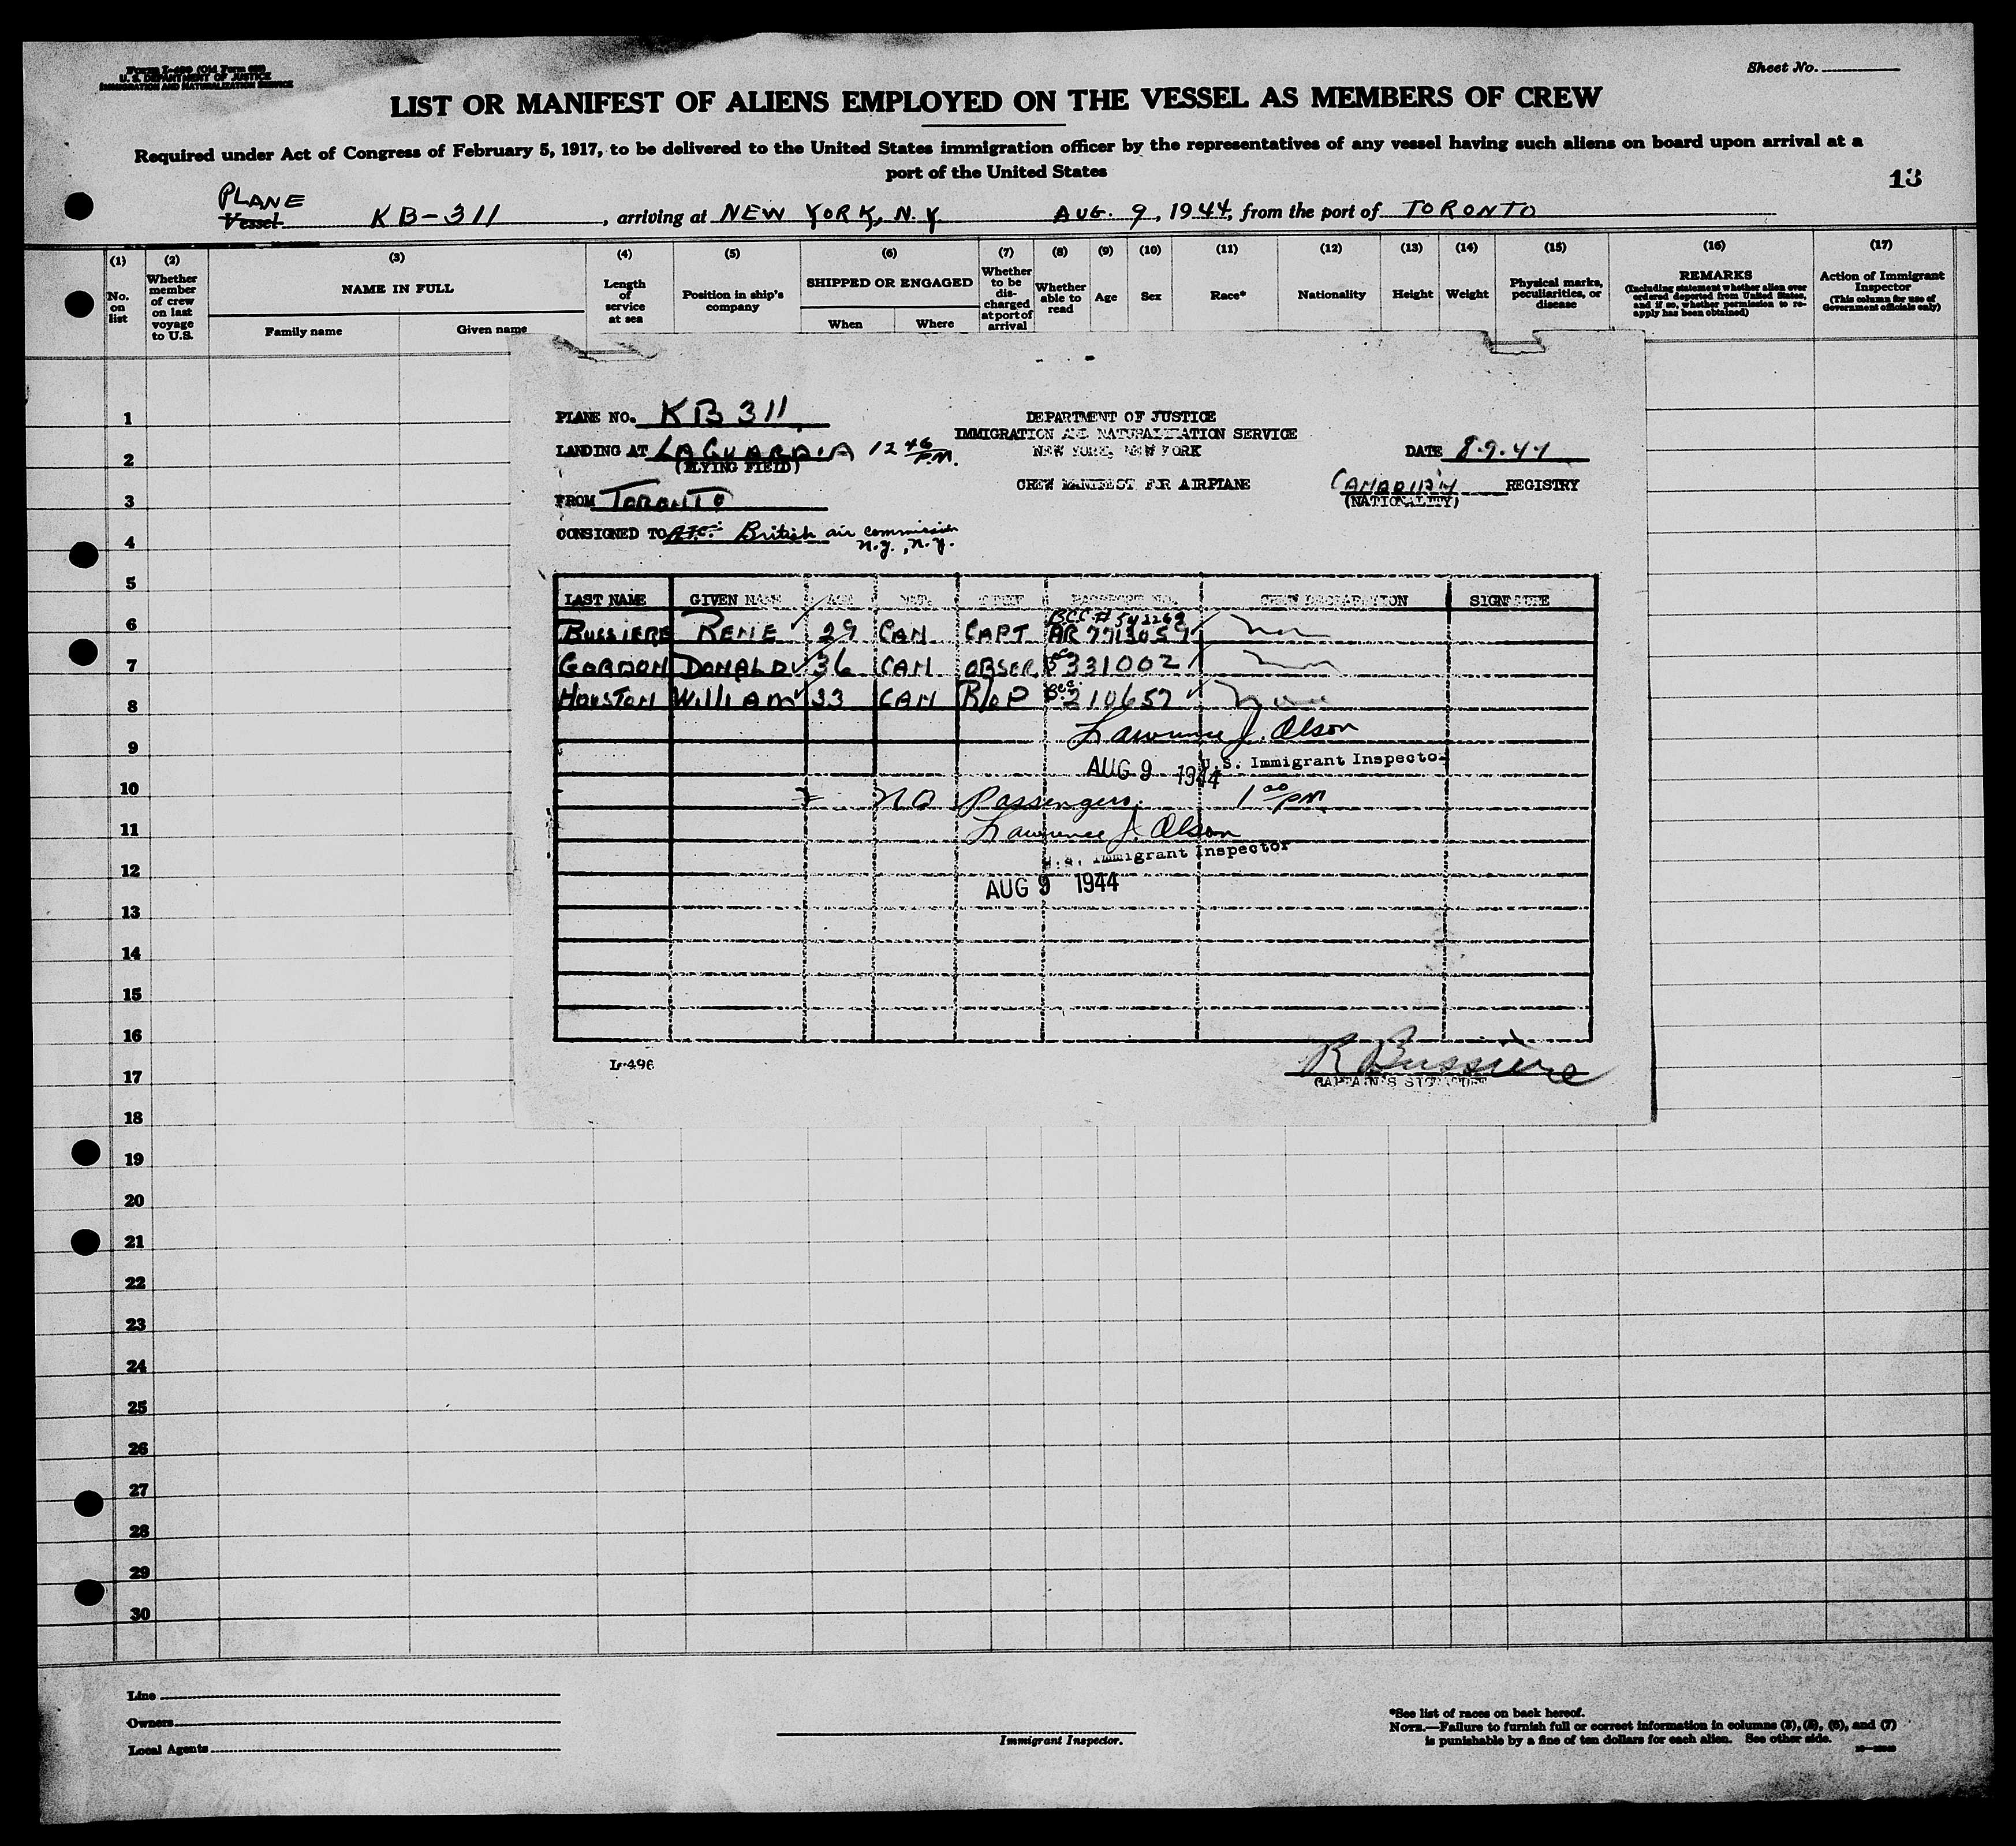 Form I-489 (Old Form 689)
U. S. DEPARTMENT OF JUSTICE
IMMIGRATION AND NATURALIZATION SERVICE
Sheet No.
LIST OR MANIFEST OF ALIENS EMPLOYED ON THE VESSEL AS MEMBERS OF CREW
Required under Act of Congress of February 5, 1917, to be delivered to the United States immigration officer by the representatives of any vessel having such aliens on board upon arrival at a
port of the United States
13
PLANE
Vessel KB-311, arriving at NEW YORK, N.Y. AUG. 9, 1944, from the port of TORONTO
(1) (2) (3) (4) (5) (6) (7) (8) (9) (10) (11) (12) (13) (14) (15) (16) (17)
No. on list
Whether member of crew on last voyage to U.S.
NAME IN FULL
Family name Given name
Length of service at sea
Position in ship's company
SHIPPED OR ENGAGED
When Where
Whether to be discharged at port of arrival
Whether able to read
Age
Sex
Race*
Nationality
Height
Weight
Physical marks, peculiarities, or disease
REMARKS
(Including statement whether alien ever ordered deported from United States, and if so, whether permission to re-apply has been obtained)
Action of Immigrant Inspector
(This column for use of Government officials only)
PLANE NO. KB 311
DEPARTMENT OF JUSTICE
IMMIGRATION AND NATURALIZATION SERVICE
NEW YORK, NEW YORK
LANDING AT LAGUARDIA 12 46 P.M.
(FLYING FIELD)
DATE 8-9-44
CREW MANIFEST FOR AIRPLANE
CANADIAN REGISTRY
(NATIONALITY)
FROM TORONTO
CONSIGNED TO British air commission
N.Y., N.Y.
LAST NAME GIVEN NAME AGE NAT. CREW PASSPORT NO. CREW DECLARATION SIGNATURE
BUSSIERE RENE 29 CAN CAPT BCC# AR 7713057
GORDON DONALD 36 CAN OBSER BCC 331002
HOUSTON WILLIAM 33 CAN R/OP BCC 210657
Lawrence J. Olson
U.S. Immigrant Inspector
AUG 9 1944
NO Passengers. 1 00 PM
Lawrence J. Olson
U.S. Immigrant Inspector
AUG 9 1944
I-496
R Bussiere
CAPTAIN'S SIGNATURE
1
2
3
4
5
6
7
8
9
10
11
12
13
14
15
16
17
18
19
20
21
22
23
24
25
26
27
28
29
30
Line
Owners
Local Agents
Immigrant Inspector.
*See list of races on back hereof.
NOTE.—Failure to furnish full or correct information in columns (3), (5), (6), and (7)
is punishable by a fine of ten dollars for each alien. See other side.